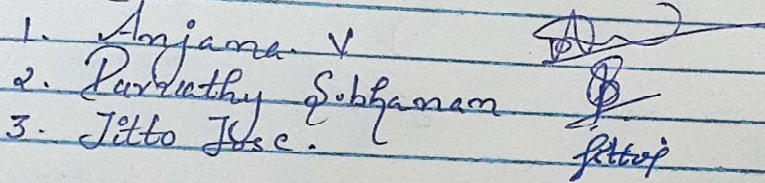 1. Anjana. V
2. Parvathy Sobhanan
3. Jitto Jose.